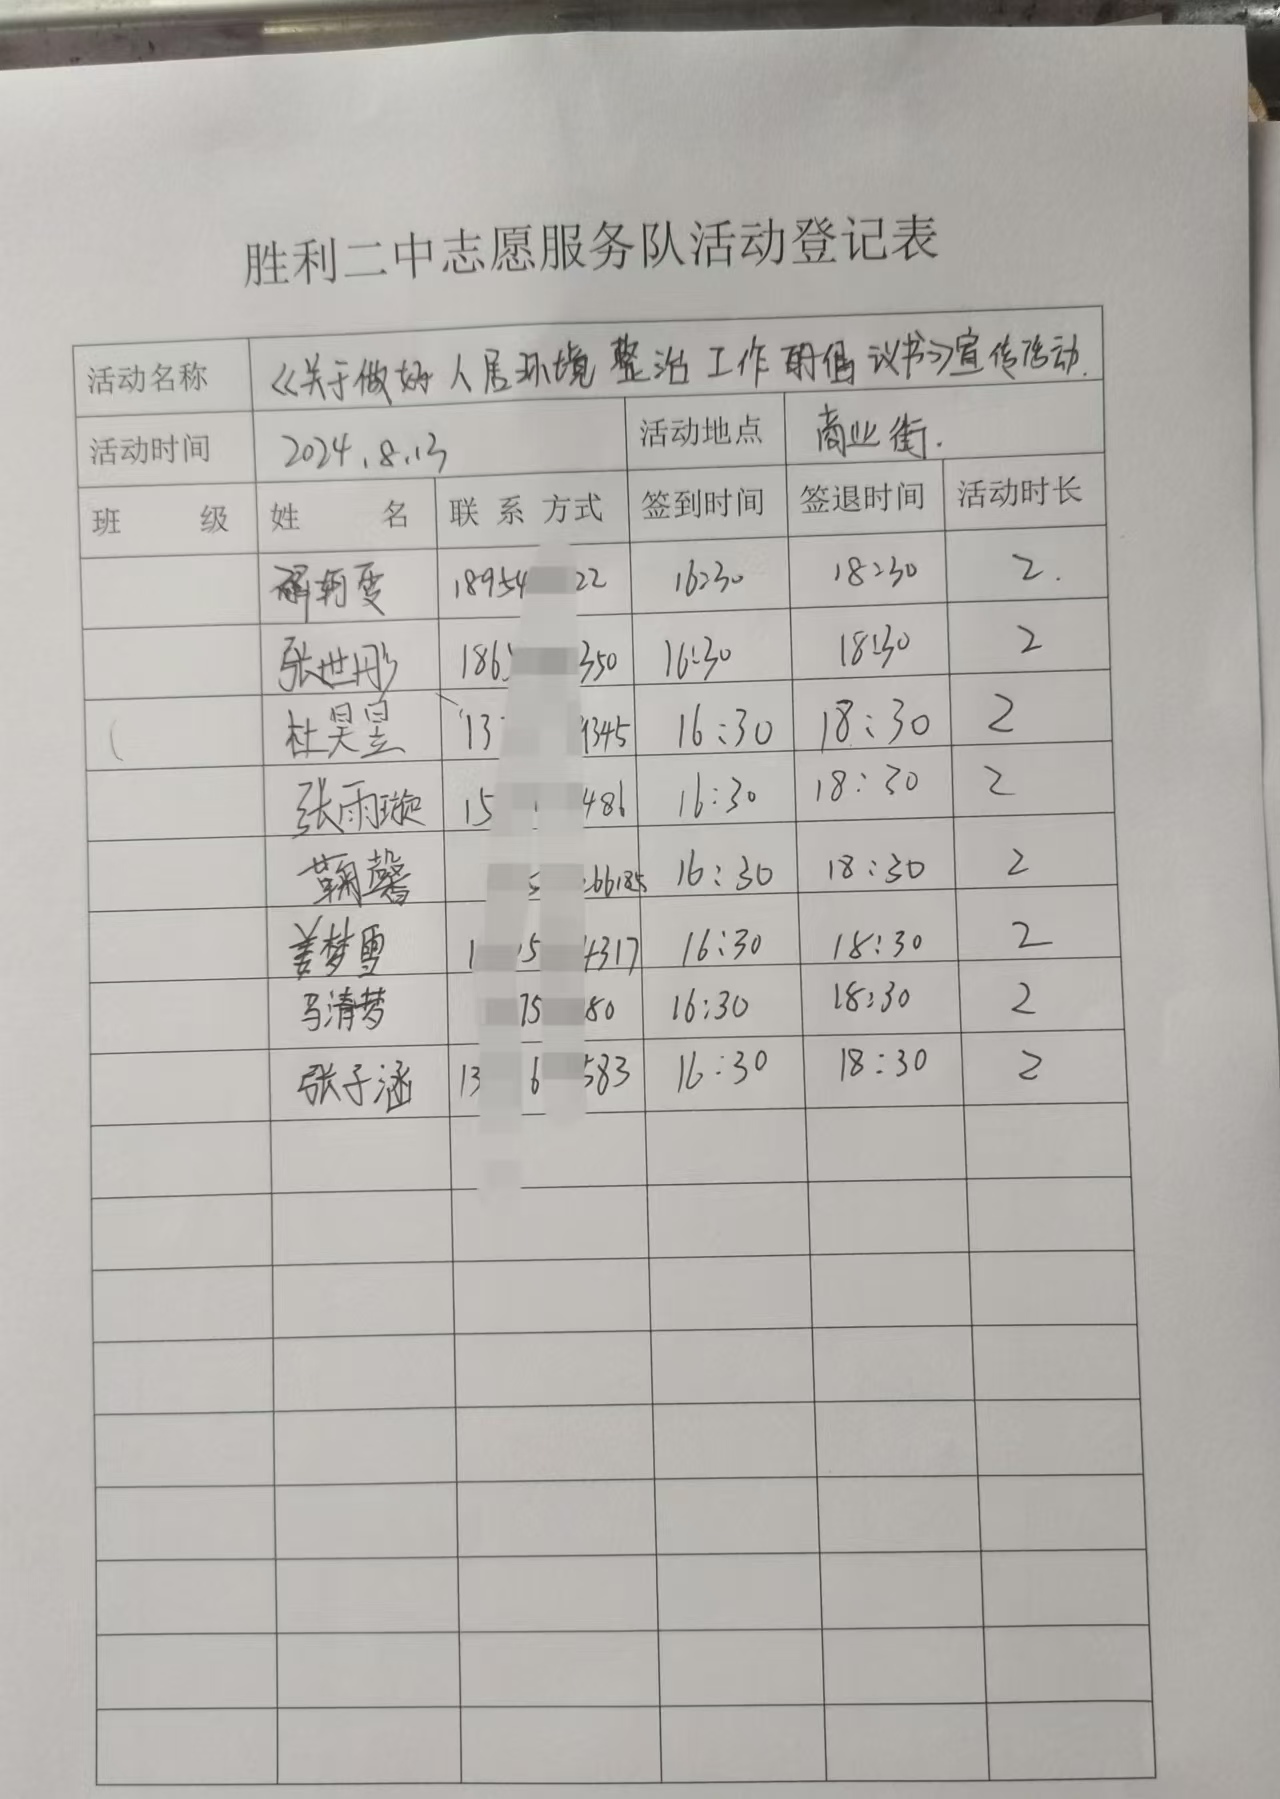 胜利二中志愿服务队活动登记表
活动名称 《关于做好人居环境整治工作的倡议书》宣传活动.
活动时间 2024.8.13 活动地点 商业街.
班 级 姓 名 联系方式 签到时间 签退时间 活动时长
18954 22 16:30 18:30 2.
张世彤 186 350 16:30 18:30 2
杜昊昱 13 1345 16:30 18:30 2
张雨璇 15 486 16:30 18:30 2
鞠馨 66185 16:30 18:30 2
姜梦雪 1 15 4317 16:30 18:30 2
马清梦 75 80 16:30 18:30 2
张子涵 13 6 583 16:30 18:30 2